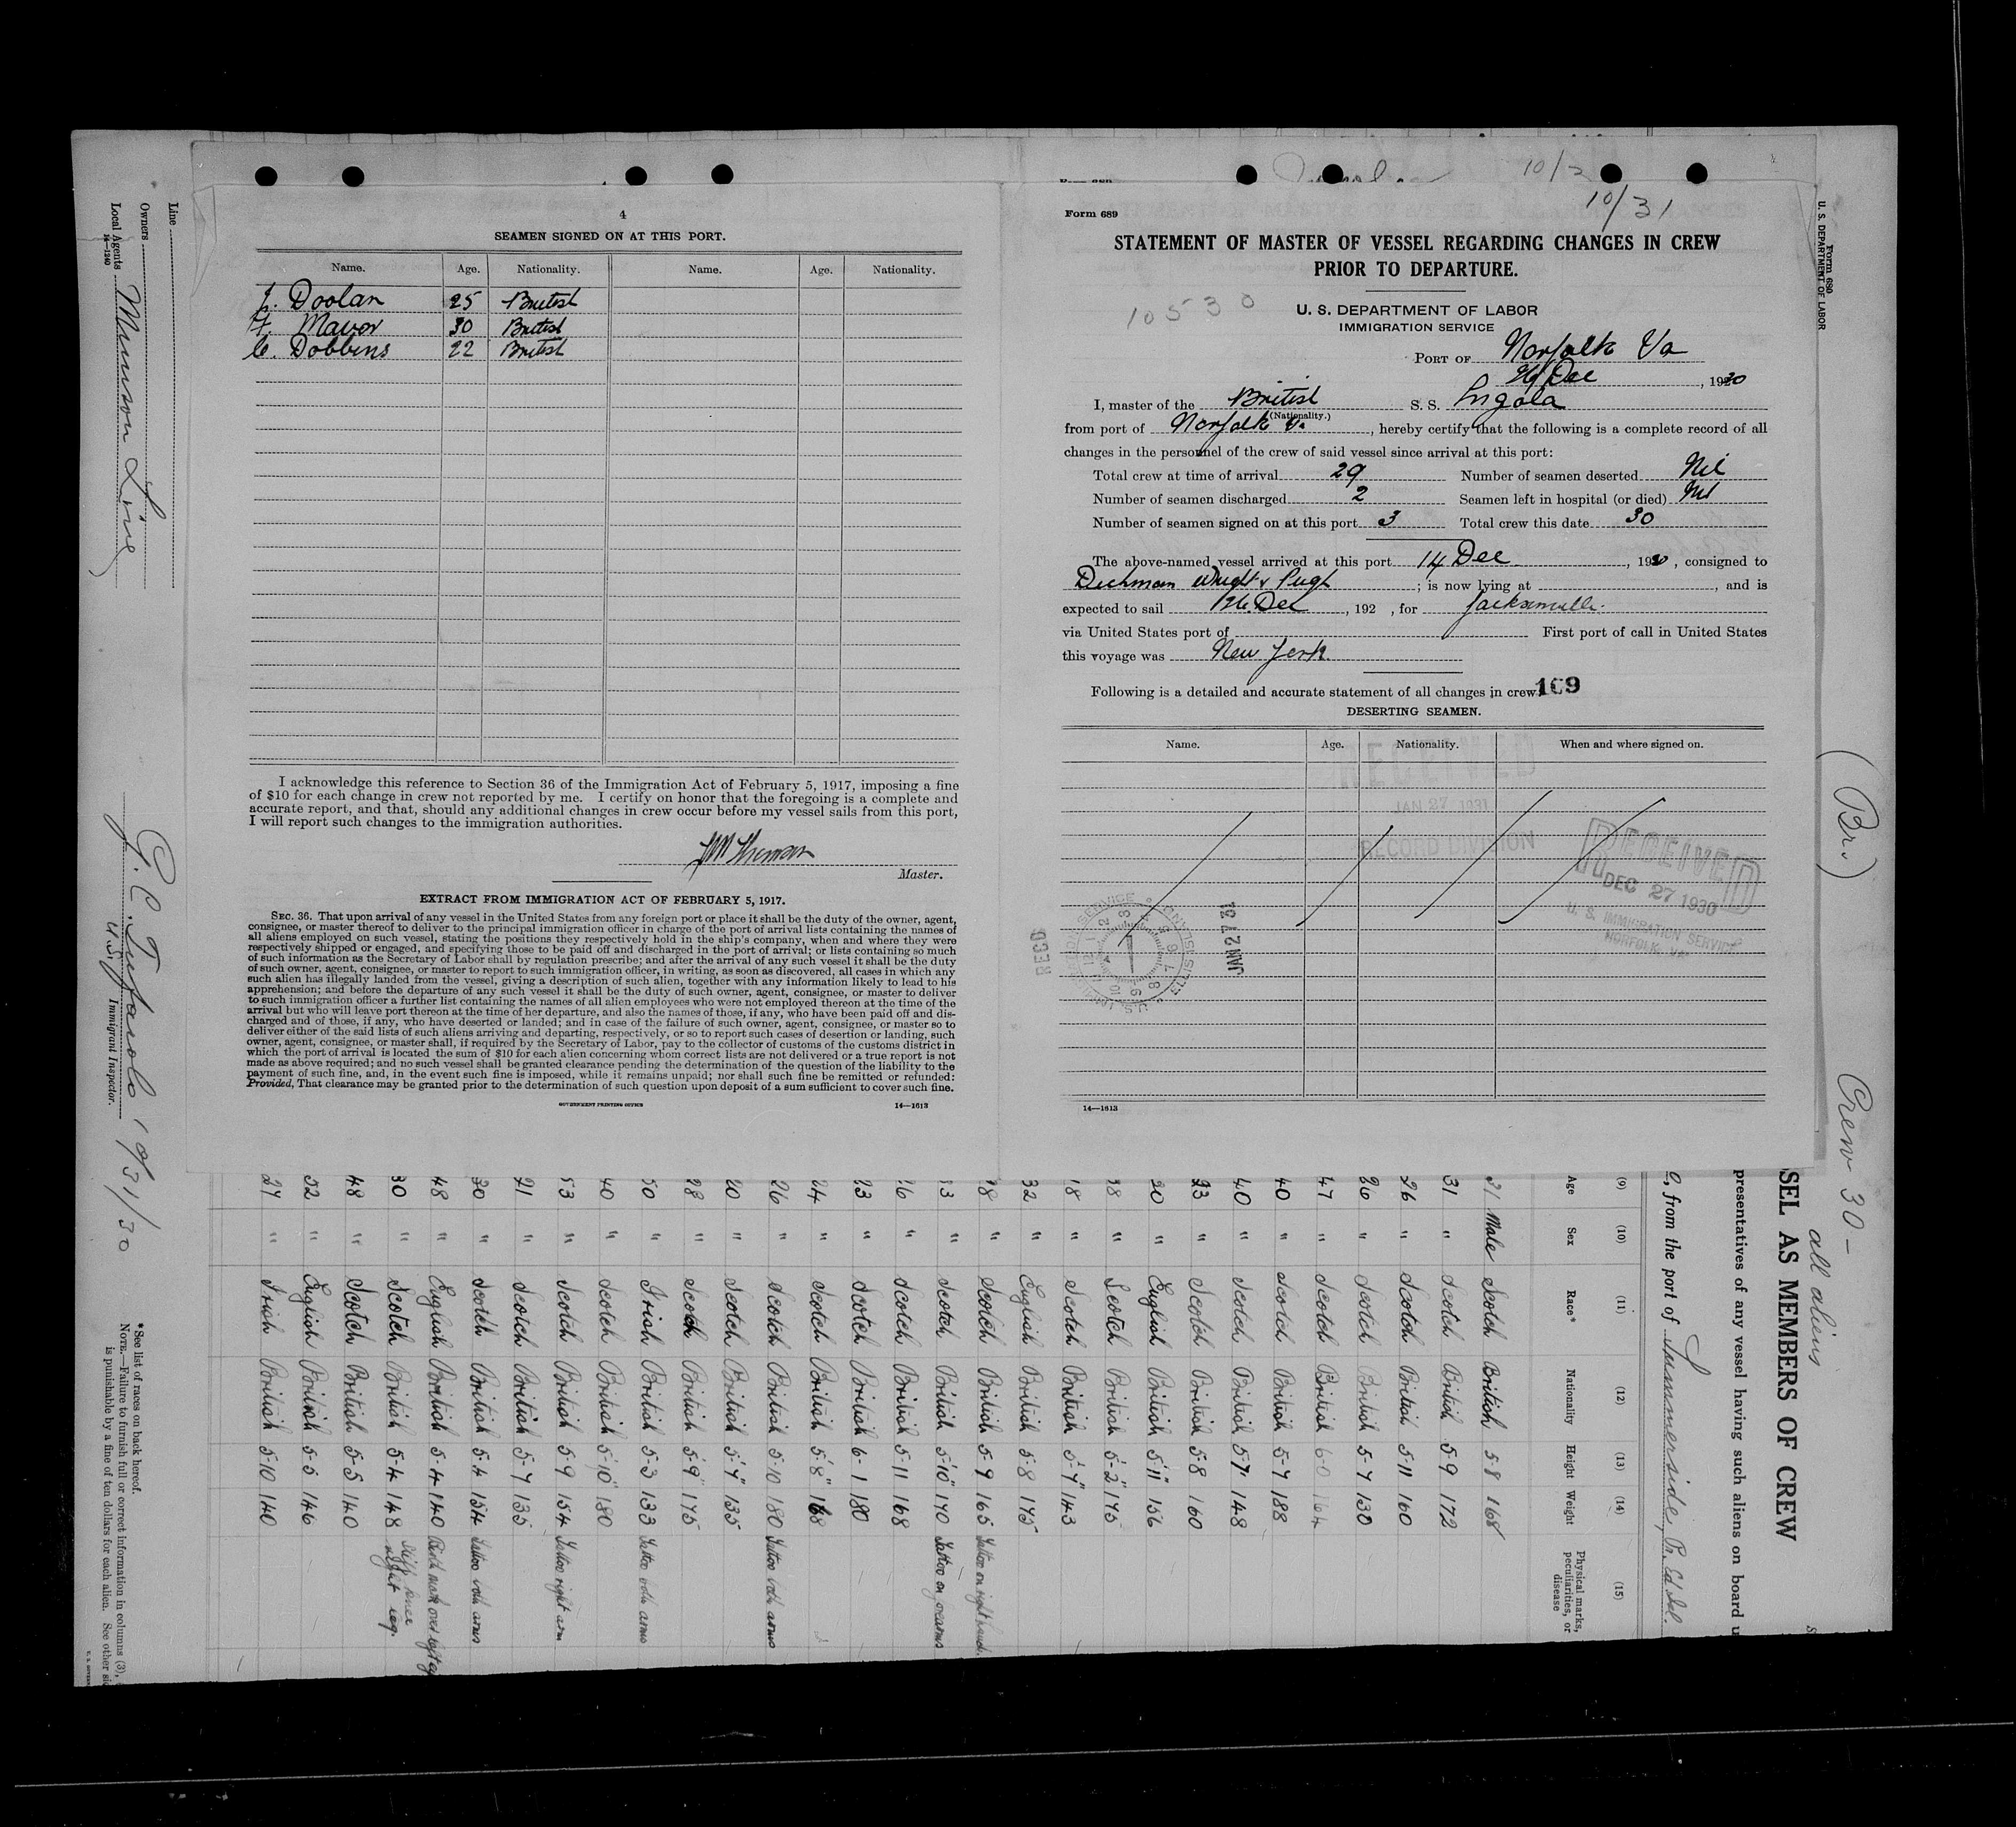 4
SEAMEN SIGNED ON AT THIS PORT.
Name. Age. Nationality. Name. Age. Nationality.
J. Doolan 25 British
F. Mavor 30 British
C. Dobbins 22 British
I acknowledge this reference to Section 36 of the Immigration Act of February 5, 1917, imposing a fine
of $10 for each change in crew not reported by me. I certify on honor that the foregoing is a complete and
accurate report, and that, should any additional changes in crew occur before my vessel sails from this port,
I will report such changes to the immigration authorities.
Master.
EXTRACT FROM IMMIGRATION ACT OF FEBRUARY 5, 1917.
SEC. 36. That upon arrival of any vessel in the United States from any foreign port or place it shall be the duty of the owner, agent,
consignee, or master thereof to deliver to the principal immigration officer in charge of the port of arrival lists containing the names of
all aliens employed on such vessel, stating the positions they respectively hold in the ship's company, when and where they were
respectively shipped or engaged, and specifying those to be paid off and discharged in the port of arrival; or lists containing so much
of such information as the Secretary of Labor shall by regulation prescribe; and after the arrival of any such vessel it shall be the duty
of such owner, agent, consignee, or master to report to such immigration officer, in writing, as soon as discovered, all cases in which any
such alien has illegally landed from the vessel, giving a description of such alien, together with any information likely to lead to his
apprehension; and before the departure of any such vessel it shall be the duty of such owner, agent, consignee, or master to deliver
to such immigration officer a further list containing the names of all alien employees who were not employed thereon at the time of the
arrival but who will leave port thereon at the time of her departure, and also the names of those, if any, who have been paid off and dis-
charged and of those, if any, who have deserted or landed; and in case of the failure of such owner, agent, consignee, or master so to
deliver either of the said lists of such aliens arriving and departing, respectively, or so to report such cases of desertion or landing, such
owner, agent, consignee, or master shall, if required by the Secretary of Labor, pay to the collector of customs of the customs district in
which the port of arrival is located the sum of $10 for each alien concerning whom correct lists are not delivered or a true report is not
made as above required; and no such vessel shall be granted clearance pending the determination of the question of the liability to the
payment of such fine, and, in the event such fine is imposed, while it remains unpaid; nor shall such fine be remitted or refunded:
Provided, That clearance may be granted prior to the determination of such question upon deposit of a sum sufficient to cover such fine.
GOVERNMENT PRINTING OFFICE 14—1613
10/31
Form 689
STATEMENT OF MASTER OF VESSEL REGARDING CHANGES IN CREW
PRIOR TO DEPARTURE.
10530
U. S. DEPARTMENT OF LABOR
IMMIGRATION SERVICE
PORT OF Norfolk Va
26 Dec, 1930
I, master of the British S. S. Ingola
(Nationality.)
from port of Norfolk Va., hereby certify that the following is a complete record of all
changes in the personnel of the crew of said vessel since arrival at this port:
Total crew at time of arrival 29 Number of seamen deserted Nil
Number of seamen discharged 2 Seamen left in hospital (or died) Nil
Number of seamen signed on at this port 3 Total crew this date 30
The above-named vessel arrived at this port 14 Dec, 1930, consigned to
Dichman Wright & Pugh; is now lying at , and is
expected to sail 26. Dec, 192 , for Jacksonville.
via United States port of First port of call in United States
this voyage was New York.
Following is a detailed and accurate statement of all changes in crew: 109
DESERTING SEAMEN.
Name. Age. Nationality. When and where signed on.
RECEIVED
JAN 27 1931
RECORD DIVISION
RECEIVED
DEC 27 1930
U. S. IMMIGRATION SERVICE
NORFOLK, VA.
JAN 27 31
14—1613
Line
Owners
Local Agents Munson Line
14—1240
G. C. Tufarolo 10/31/30
U. S. Immigrant Inspector.
Form 680
U. S. DEPARTMENT OF LABOR
(Br.)
Crew 30 –
all aliens
SEL AS MEMBERS OF CREW
presentatives of any vessel having such aliens on board u
0, from the port of Summerside, Pr. Ed Isl
(9) (10) (11) (12) (13) (14) (15)
Age Sex Race* Nationality Height Weight Physical marks, peculiarities, or disease
31 Male Scotch British 5-8 168
31 " Scotch British 5-9 172
26 " Scotch British 5-11 160
26 " Scotch British 5-7 130
47 " Scotch British 6-0 164
40 " Scotch British 5-7 188
40 " Scotch British 5-7 148
23 " Scotch British 5-8 160
20 " English British 5-11 156
18 " Scotch British 5-2 175
18 " Scotch British 5-7 143
32 " English British 5-8 175
18 " Scotch British 5-9 165 Tattoo on right
" Scotch British 5-10 170 Tattoo on
" Scotch British 5-11 168
23 " Scotch British 6-1 180
24 " Scotch British 5-8 168
26 " Scotch British 5-10 180 Tattoo both arms
20 " Scotch British 5-7 135
28 " Scotch British 5-9 175
50 " Irish British 5-3 133 Tattoo both arms
40 " Scotch British 5-10 180
53 " Scotch British 5-9 154 Tattoo right arm
21 " Scotch British 5-7 135
30 " Scotch British 5-4 154 Tattoo both arms
48 " English British 5-4 140
30 " Scotch British 5-4 148
48 " Scotch British 5-5 140
52 " English British 5-5 146
27 " Irish British 5-10 140
*See list of races on back hereof.
NOTE.—Failure to furnish full or correct information in columns (3),
is punishable by a fine of ten dollars for each alien. See other si